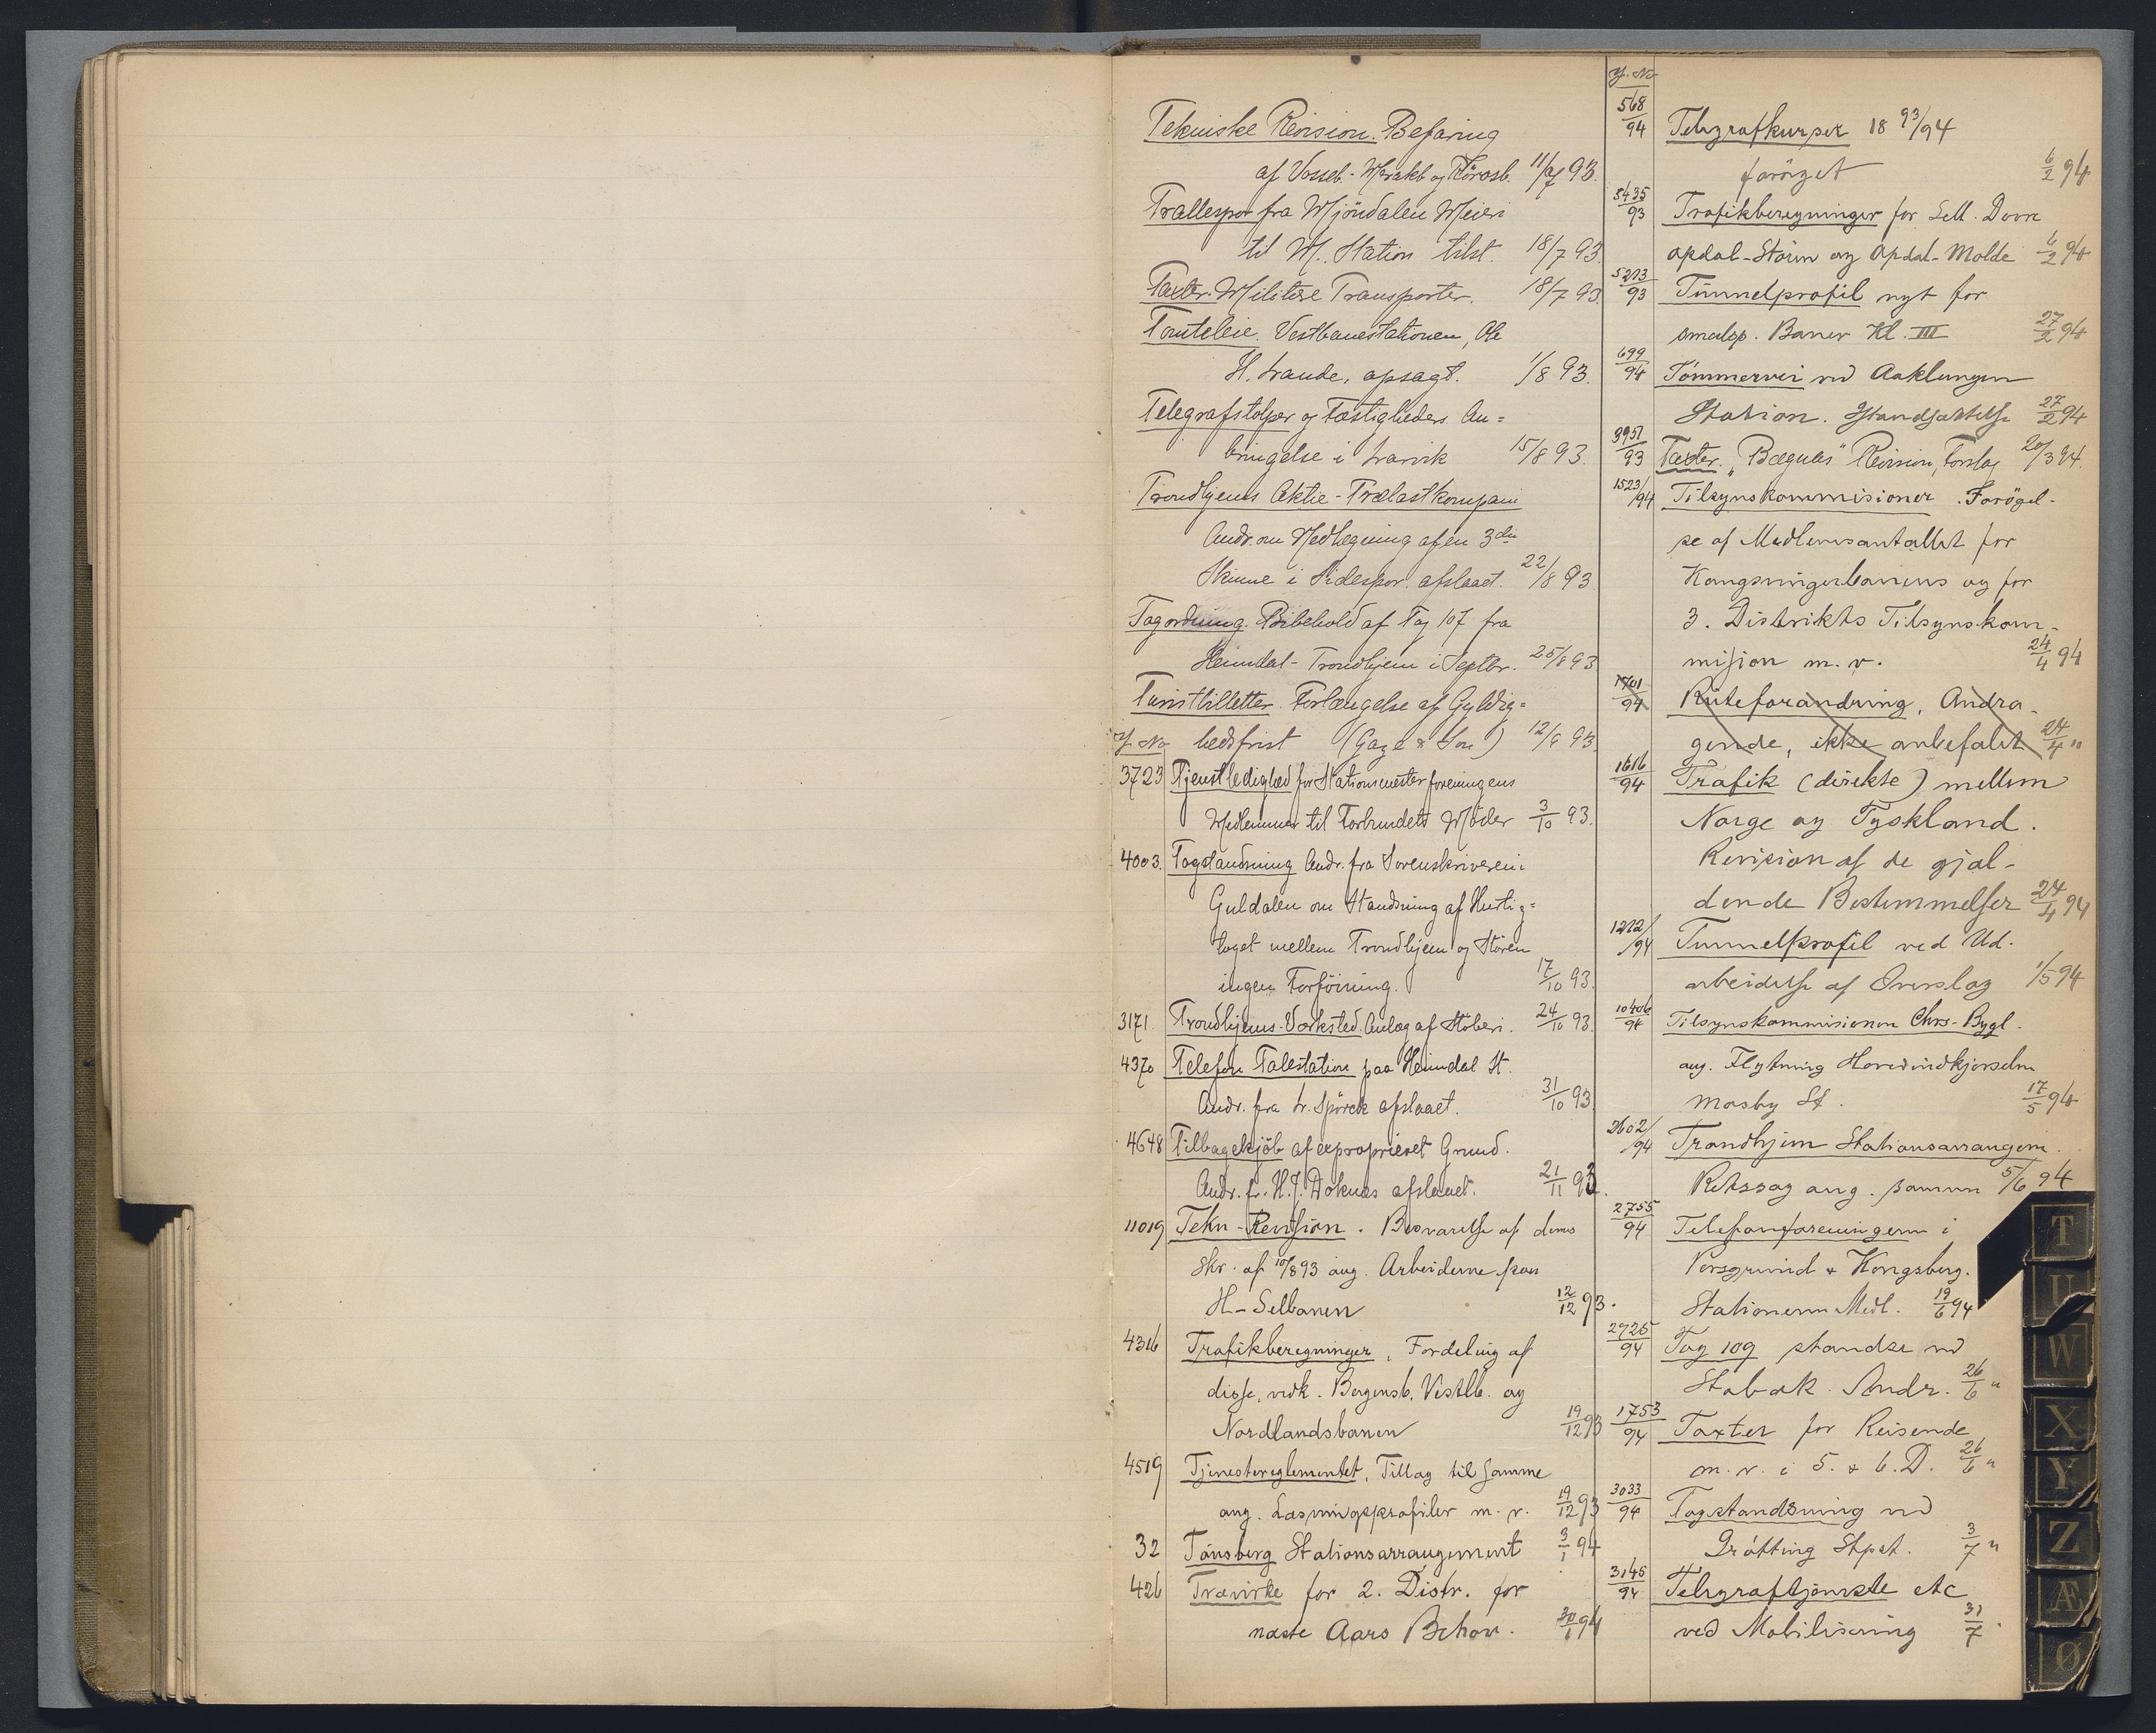 Tekniske Revision. Befaring
af Vosseb.- Merakb og Rørosb. 11/7 93.
Trallespor fra Mjöndalen Meieri
til M. Station tilst. 18/7 93.
Taxter. Militære Transporter. 18/7 93.
Tomteleie. Vestbanestationen, Ole
H. Lande, opsagt. 1/8 93.
Telegrafstolper og Fæstigheders An=
bringelse i Larvik 15/8 93.
Trondhjems Aktie-Trælastkompani
Andr. om Nedlægning af en 3die
Skinne i Sidespor. afslaaet. 22/8 93
Togordning. Bibehold af Tog 107 fra
Heimdal - Trondhjem i Septbr. 25/8 93
Turistbilletter. Forlængelse af Gyldig=
J. No hedsfrist (Gaze & Son) 12/9 93.
3723 Tjenstledighed for Stationsmesterforeningens
Medlemmer til Forbundets Möder 3/10 93.
4003. Togstandsning Andr. fra Sorenskriveren i
Guldalen om Standsning af Hurtig=
toget mellem Trondhjem og Stören
ingen Forföining. 17/10 93.
3171. Trondhjems-Værksted. Anlæg af Stöberi. 24/10 93.
4370 Telefon Talestation paa Heimdal St.
Andr. fra L. Spörck afslaaet. 31/10 93.
4648 Tilbagekjöb af exproprieret Grund.
Andr. f. H. J. Doknæs afslaaet. 21/11 93.
11019 Tekn-Revision. Besvarelse af deres
Skr. af 10/8 93 ang. Arbeiderne paa
H-Selbanen 12/12 93.
4316 Trafikberegninger, Fordeling af
disse, vedk. Bergensb. Vestlb. og
Nordlandsbanen 19/12 93
4519 Tjenestereglementet, Tillæg til samme
ang. Læsningsprofiler m. v. 19/12 93
32 Tönsberg Stationsarrangement 3/1 94
426 Trævirke for 2. Distr. for
næste Aars Behov. 30/1 94
J. No
568/94 Telegrafkurset 18 93/94
foröget 6/2 94
5435/93 Trafikberegninger for Sell. Dovre
Opdal-Stören og Opdal-Molde 6/2 94
5273/93 Tunnelprofil nyt for
smalsp. Baner Kl. III 27/2 94
699/94 Tömmervei ved Aaklungen
Station. Istandsættelse 27/2 94
3951/93 Taxter. "Bægnas" Revision, Forslag 20/3 94.
1523/94 Tilsynskommisioner. Forögel-
se af Medlemsantallet for
Kongsvingerbanens og for
3. Distrikts Tilsynskom-
mision m. v. 24/4 94
1701/94 Ruteforandring, Andra-
gende, ikke anbefalet 24/4 "
1616/94 Trafik (direkte) mellem
Norge og Tyskland.
Revision af de gjæl-
dende Bestemmelser 24/4 94
1222/94 Tunnelprofil ved Ud-
arbeidelse af Overslag 1/5 94
10406/94 Tilsynskommisionen Chrs-Bygl.
ang. Flytning Hovedindkjørselen
Mosby St. 17/5 94
2602/94 Trondhjem Stationsarrangem.
Retssag ang. samme 5/6 94
2755/94 Telefonforeningen i
Porsgrund & Kongsberg.
Stationerne Medl. 19/6 94
2926/94 Tog 109 standse ved
Stabæk. Andr. 26/6 "
1753/94 Taxter for Reisende
m. v. i 5. & 6. D. 26/6 "
3033/94 Togstandsning ved
Drötting Stpst. 3/7 "
3145/94 Telegraftjeneste etc
ved Mobilisering 31/7 "
T
U
W
X
Y
Z
Æ
Ø